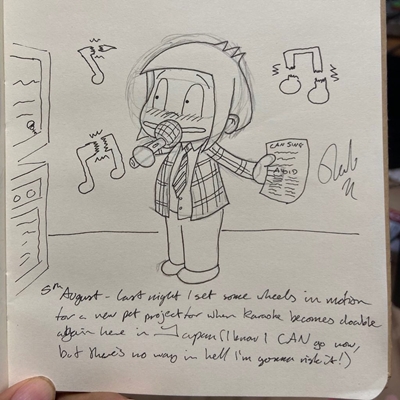 CAN SING
AVOID
5th August - Last night I set some wheels in motion
for a new pet project for when karaoke becomes doable
again here in Japan (I know I CAN go now,
but there's no way in hell I'm gonna risk it!)